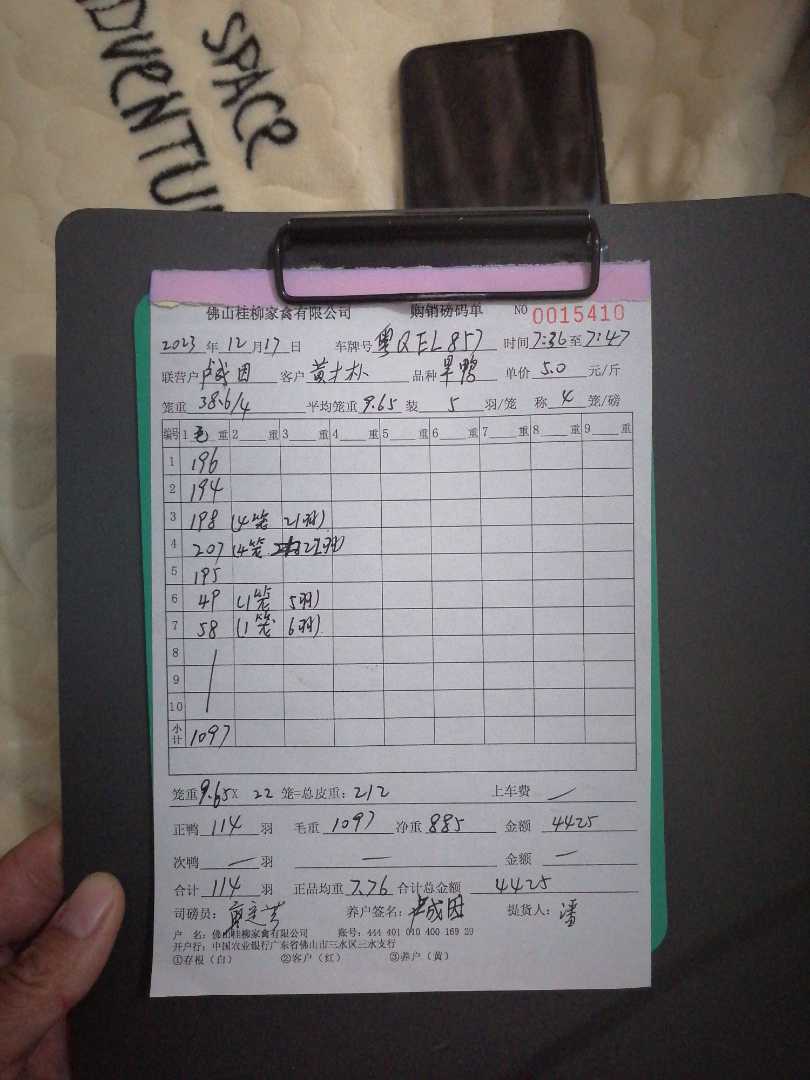 SPACE
ADVENTU
佛山桂柳家禽有限公司 购销磅码单 NO 0015410
2023年12月17日 车牌号粤QEL857 时间7:36至7:47
联营户卢成因 客户黄才朴 品种旱鸭 单价5.0元/斤
笼重38.6/4 平均笼重9.65 装5羽/笼 称4笼/磅
编号 1毛重 2重 3重 4重 5重 6重 7重 8重 9重
1 196
2 194
3 198 (4笼 21羽)
4 207 (4笼 22羽)
5 195
6 49 (1笼 5羽)
7 58 (1笼 6羽)
8
9
10
小计 1097
笼重9.65X22笼=总皮重:212 上车费 —
正鸭114羽 毛重1097 净重885 金额4425
次鸭—羽 — 金额—
合计114羽 正品均重7.76 合计总金额4425
司磅员: 养户签名:卢成因 提货人:潘
户 名:佛山桂柳家禽有限公司 账号:444 401 010 400 169 29
开户行:中国农业银行广东省佛山市三水区三水支行
①存根(白) ②客户(红) ③养户(黄)